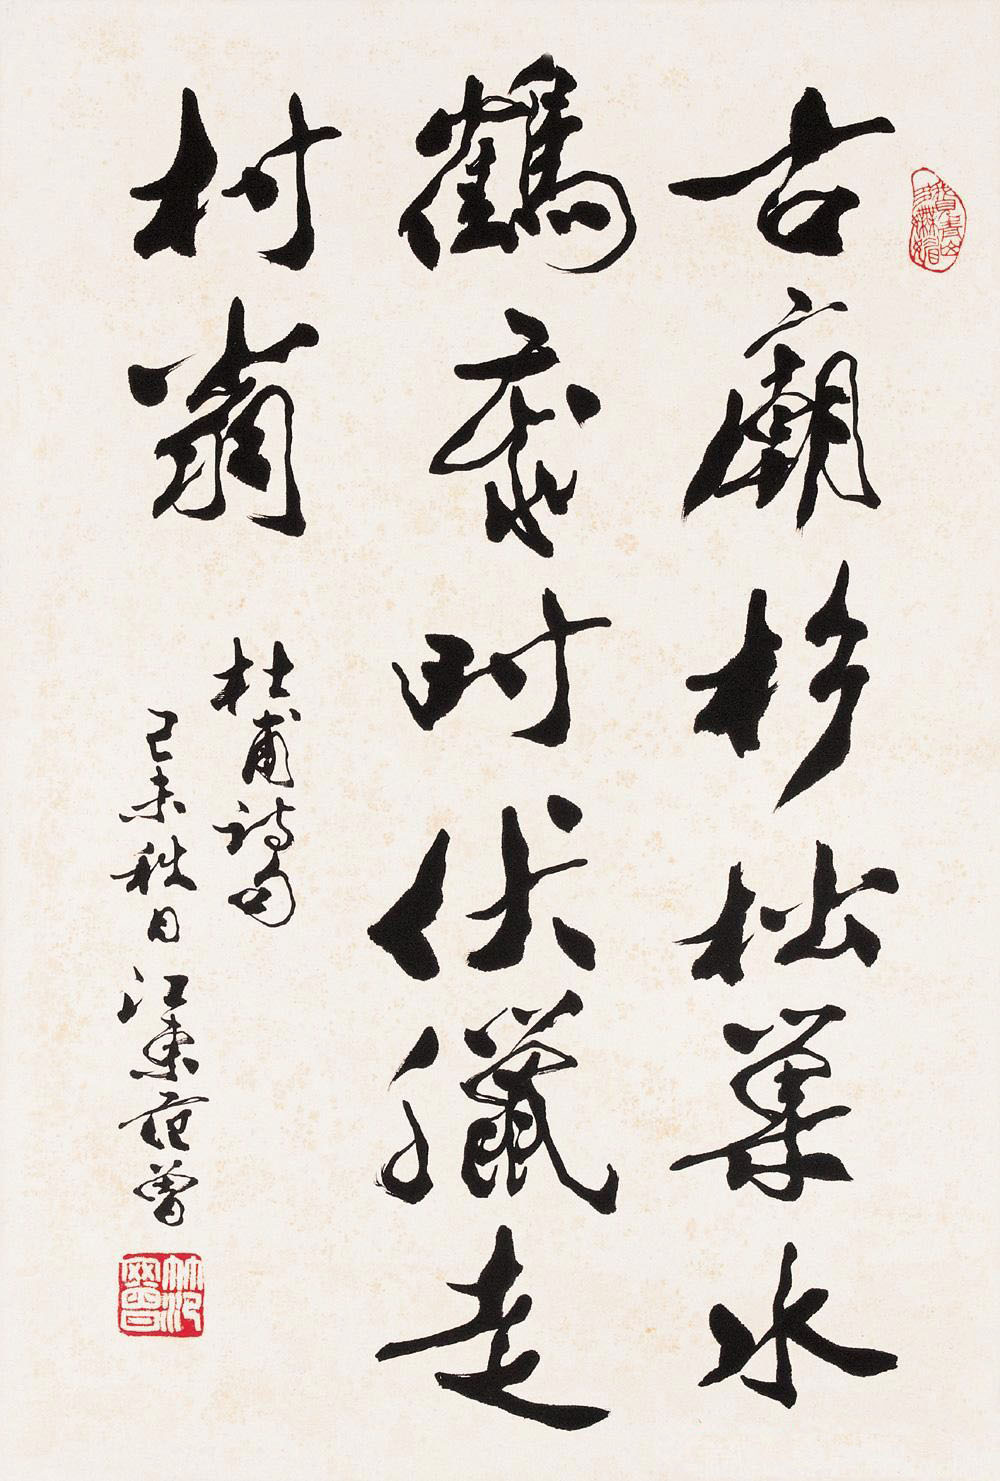 古廟杉松巢水
鶴歲時伏臘走
村翁
杜甫詩句
己未秋日江東范曾
范曾